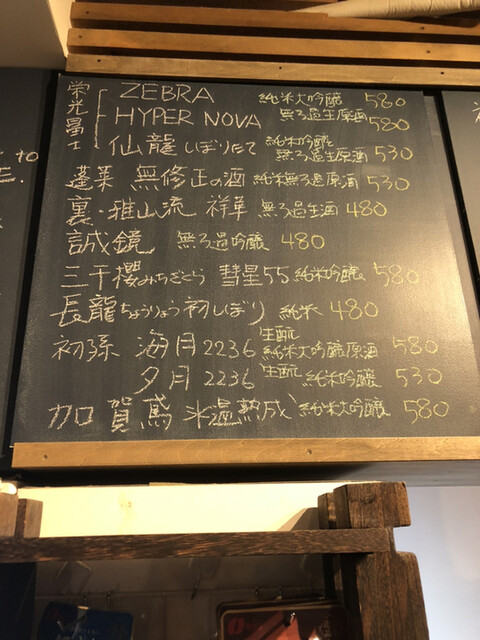 栄光冨士
ZEBRA 純米大吟醸 無ろ過生原酒 580
HYPER NOVA 580
仙龍しぼりたて 純米吟醸 無ろ過生原酒 530
蓬莱 無修正の酒 純米無ろ過原酒 530
裏・雅山流 祥華 無ろ過生酒 480
誠鏡 無ろ過吟醸 480
三千櫻みちざくら 彗星55 純米吟醸 580
長龍ちょうりょう 初しぼり 純米 480
初孫 海月2236 生酛 純米大吟醸原酒 580
夕月2236 生酛 純米吟醸 530
加賀鳶 氷温熟成 純米大吟醸 580
to